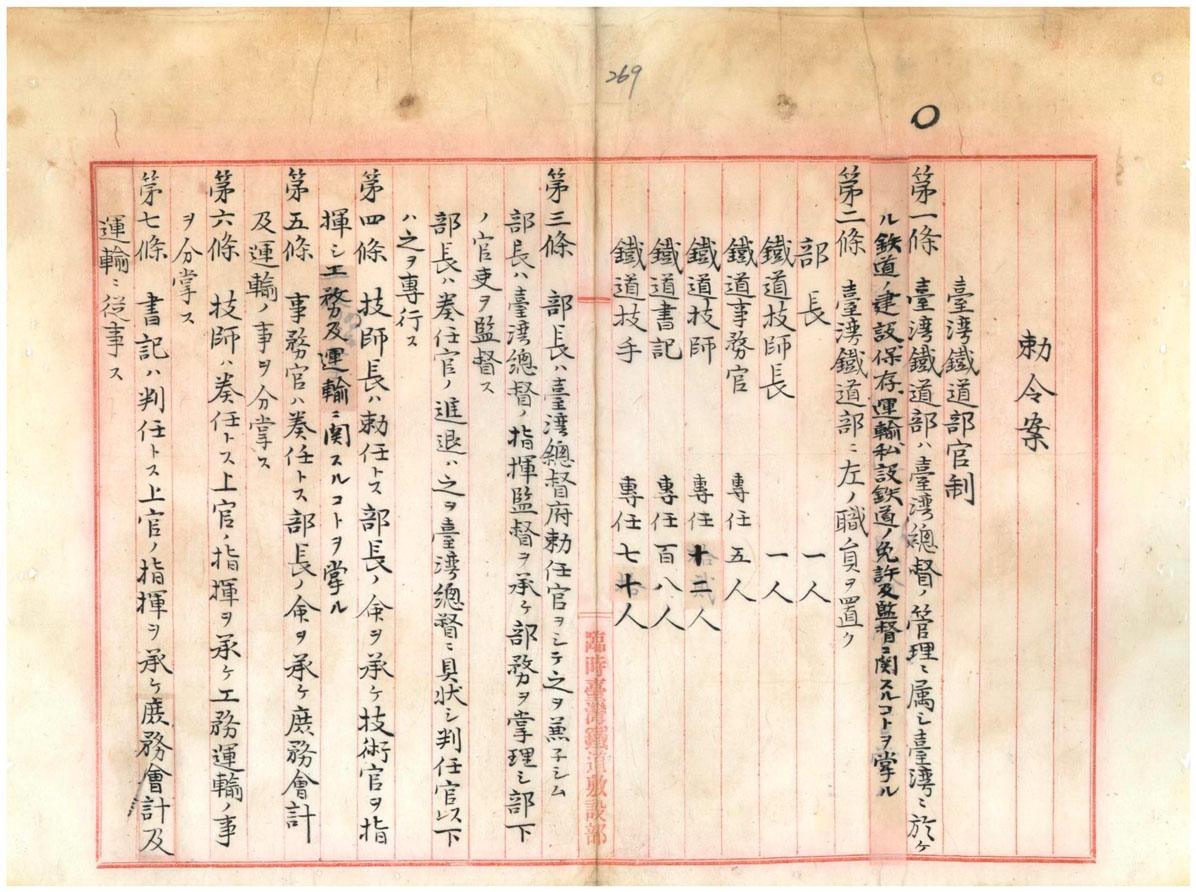 269
勅令案
臺灣鐵道部官制
第一條 臺灣鐵道部ハ臺灣總督ノ管理ニ属シ臺灣ニ於ケ
ル鉄道ノ建設保存運輸私設鉄道ノ免許及監督ニ関スルコトヲ掌ル
第二條 臺灣鐵道部ニ左ノ職員ヲ置ク
部長 一人
鐵道技師長 一人
鐵道事務官 專任五人
鐵道技師 專任十二人
鐵道書記 專任百八人
鐵道技手 專任七十人
臨時臺灣鐵道敷設部
第三條 部長ハ臺灣總督府勅任官ヲシテ之ヲ兼子シム
部長ハ臺灣總督ノ指揮監督ヲ承ケ部務ヲ掌理シ部下
ノ官吏ヲ監督ス
部長ハ奏任官ノ進退ハ之ヲ臺灣總督ニ具状シ判任官以下
ハ之ヲ專行ス
第四條 技師長ハ勅任トス部長ノ命ヲ承ケ技術官ヲ指
揮シ工務及運輸ニ関スルコトヲ掌ル
第五條 事務官ハ奏任トス部長ノ命ヲ承ケ庶務會計
及運輸ノ事ヲ分掌ス
第六條 技師ハ奏任トス上官ノ指揮ヲ承ケ工務運輸ノ事
ヲ分掌ス
第七條 書記ハ判任トス上官ノ指揮ヲ承ケ庶務會計及
運輸ニ從事ス